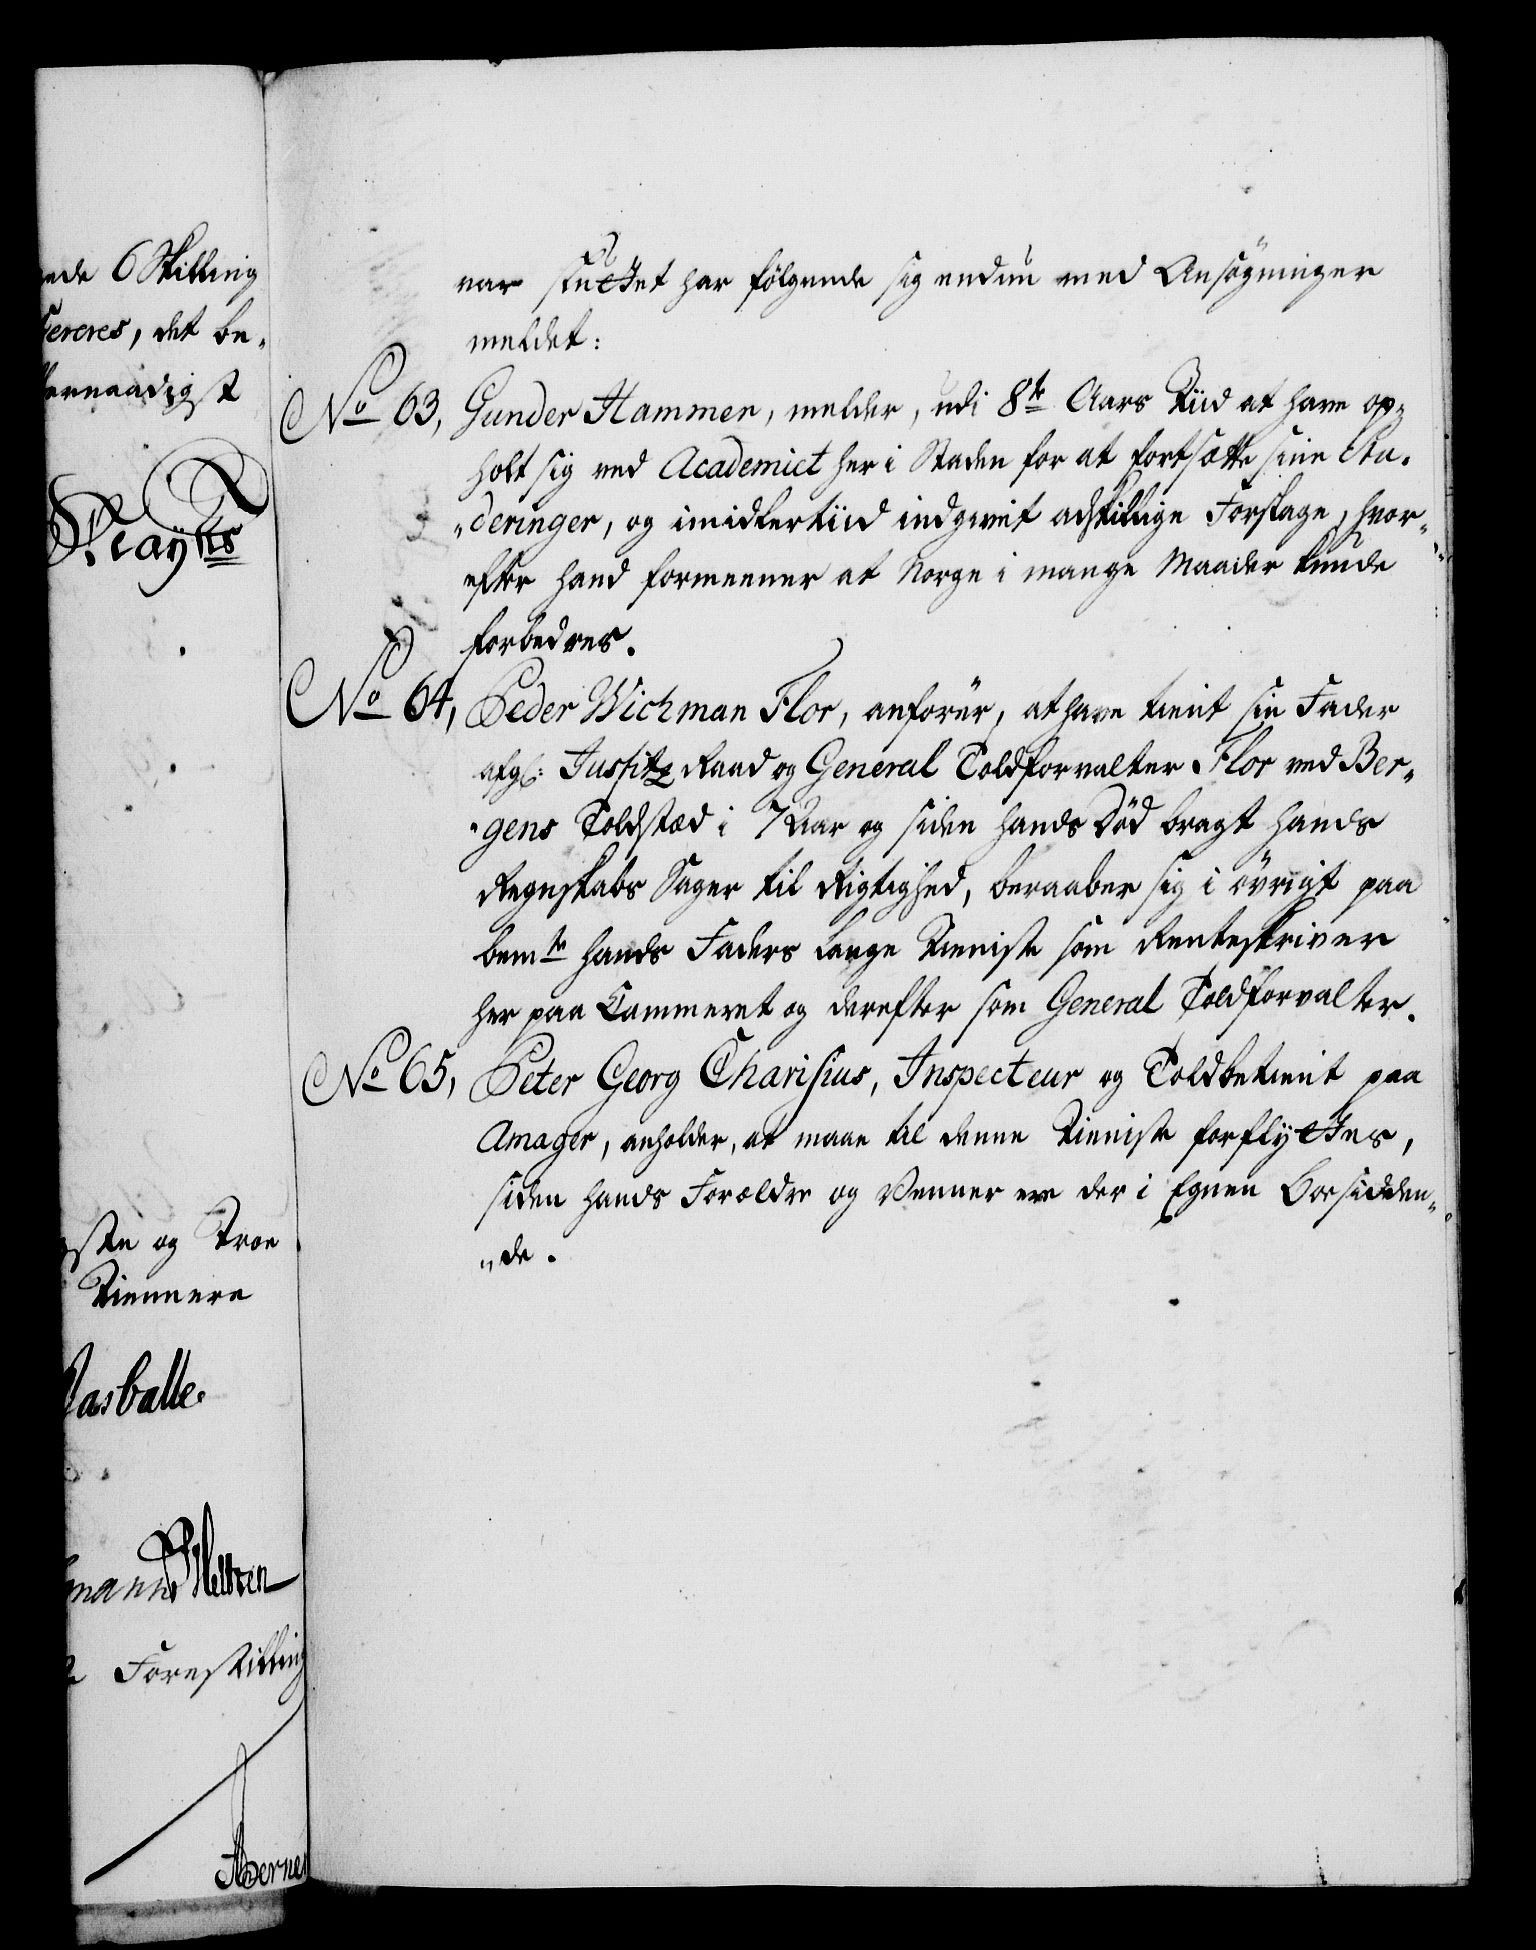 ede 6 Skilling
cereres, det be„
ernaadigst
var sluttet har følgende sig endnu med Ansøgninger
meldet:
No 63, Gunder Hammer, melder, udi 8te Aars Tiid at have op„
holt sig ved Academiet her i Staden for at fortsætte sine Stu„
„deringer, og imidlertiid indgivet adskillige Forslage, hvor„
efter hand formeener at Norge i mange Maader kunde
forbedres.
No 64, Peder Wichman Flor, anfører, at have tient sin Fader
afg: Justitz Raad og General Toldforvalter Flor ved Ber„
„gens Toldstæd i 7 Aar og siden hands Død bragt hands
Regnskabs Sager til Rigtighed, beraaber sig i øvrigt paa
bemte hands Faders lange Tieniste som Renteskriver
her paa Cammeret og derefter som General Toldforvalter.
No 65, Peter Georg Charisius, Inspecteur og Toldbetient paa
Amager, anholder, at maae til denne Tieniste forflyttes,
siden hands Forældre og Venner ere der i Egnen Boesidden„
„de.
og Troe
Tiennere
manns
Forestilling